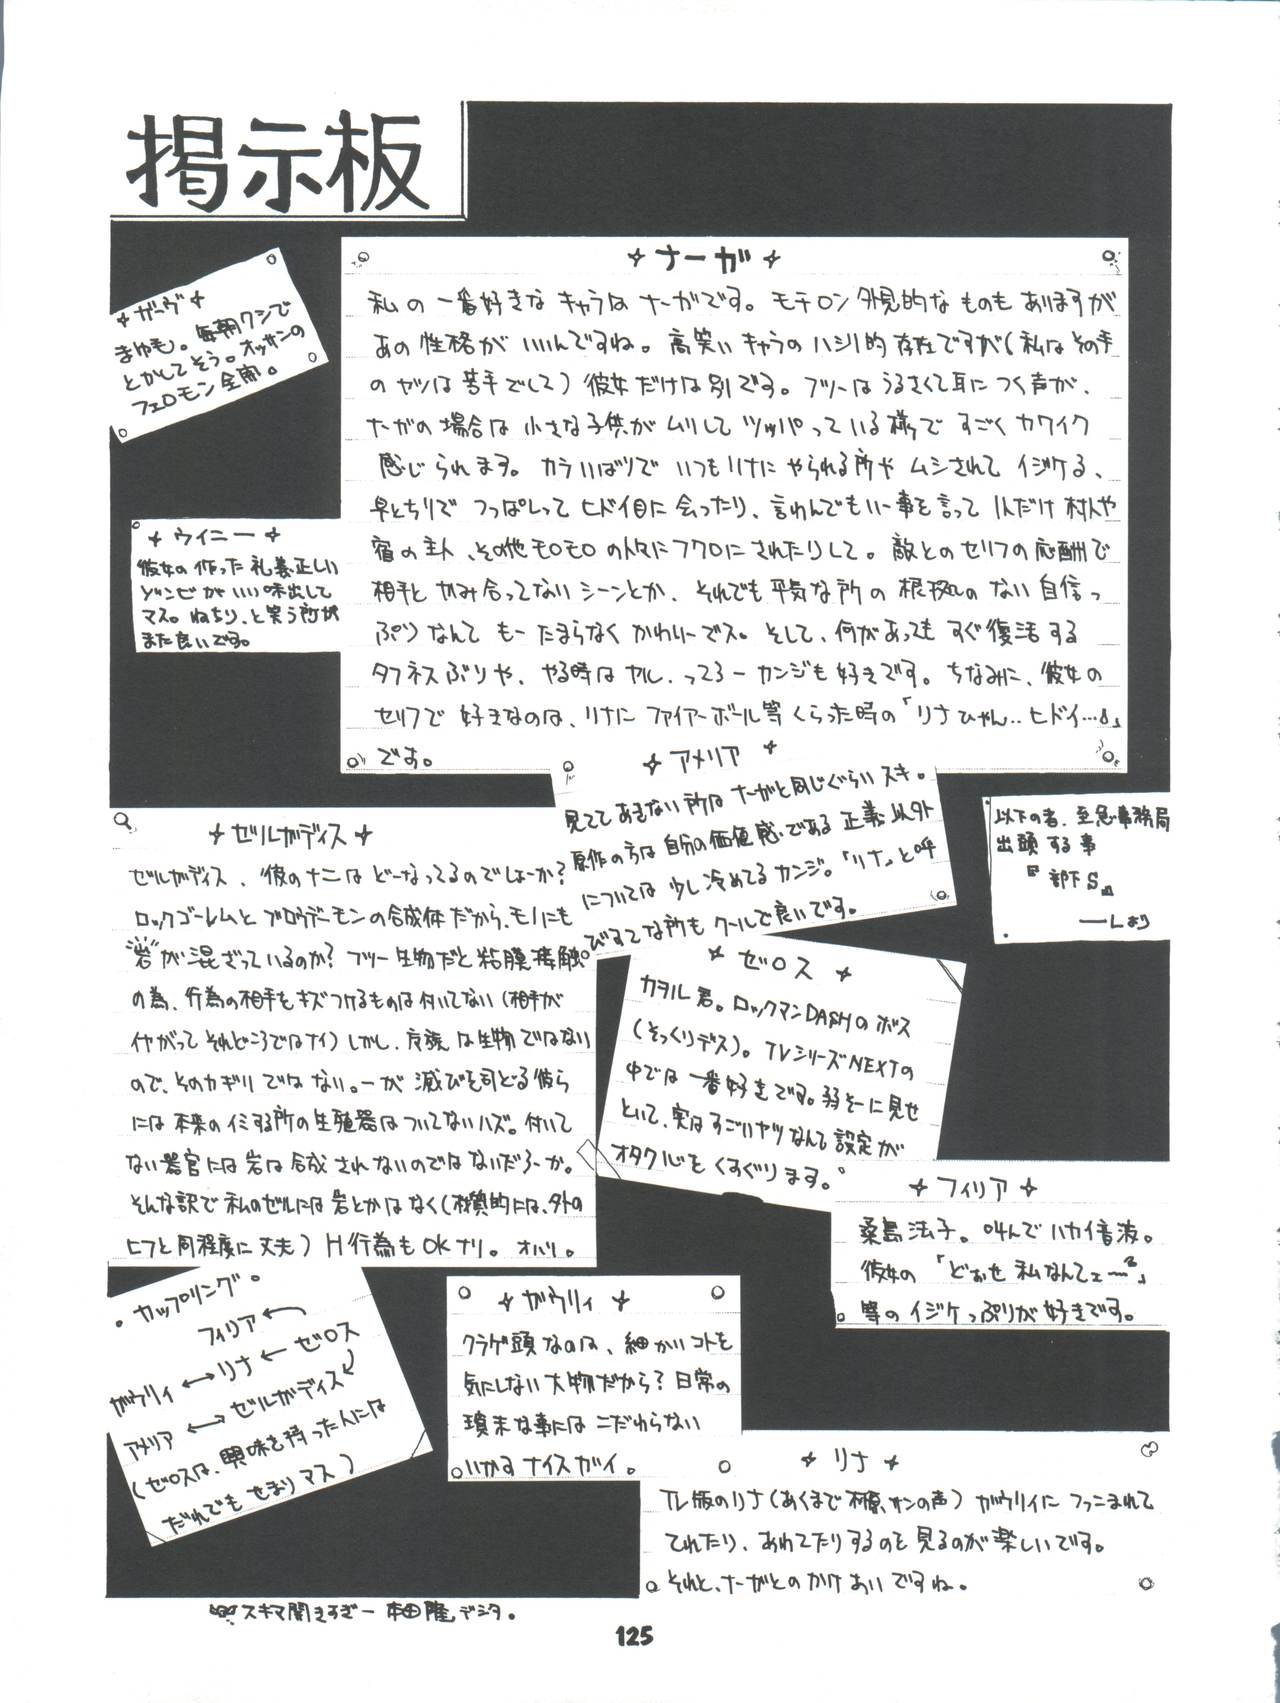 掲示板
✧ガーヴ✧
まゆも。毎朝クシで
とかしてそう。オッサンの
フェロモン全開。
✧ナーガ✧
私の一番好きなキャラはナーガです。モチロン外見的なものもありますが
あの性格がいいんですね。高笑いキャラのハシリ的存在ですが(私はその手
のヤツは苦手でして)彼女だけは別です。フツーはうるさくて耳につく声が、
ナーガの場合は小さな子供がムリしてツッパっている様ですごくカワイク
感じられます。カラいばりでいつもリナにやられる所やムシされてイジケる、
早とちりでつっぱしってヒドイ目に会ったり、言わんでもいー事を言って1人だけ村人や
宿の主人、その他モロモロの人々にフクロにされたりして。敵とのセリフの応酬で
相手とかみ合ってないシーンとか、それでも平気な所の根拠のない自信っ
ぷりなんてもーたまらなくかわいーでス。そして、何があってもすぐ復活する
タフネスぶりや、やる時はヤル、ってろーカンジも好きです。ちなみに、彼女の
セリフで好きなのは、リナにファイアーボール等くらった時の「リナひゃん‥ヒドイ…」
です。
✧ウイニー✧
彼女の作った礼義正しい
ゾンビがいい味出して
マス。ねちり、と笑う所が
また良いです。
✧アメリア✧
見ててあきない所はナーガと同じぐらいスキ。
原作の方は自分の価値感である正義以外
については少し冷めてるカンジ。「リナ」と呼
びすてな所もクールで良いです。
以下の者、至急事務局
出頭する事
『部下S』
――Lより
✧ゼルガディス✧
ゼルガディス、彼のナニはどーなってるのでしょーか?
ロックゴーレムとブロウデーモンの合成体だから、モノにも
"岩"が混ざっているのか?フツー生物だと粘膜接触
の為、行為の相手をキズつけるものは付いてない(相手が
イヤがってそれどころではナイ)しかし、魔族は生物ではない
ので、そのカギリではない。―が滅びを司どる彼ら
には本来のイミする所の生殖器はついてないハズ。付いて
ない器官には岩は合成されないのではないだろーか。
そんな訳で私のゼルには岩とかはなく(材質的には、外の
ヒフと同程度に丈夫)H行為もOKナリ。オハリ。
✧ゼロス✧
カヲル君。ロックマンDASHのボス
(そっくりデス)。TVシリーズNEXTの
中では一番好きです。弱そーに見せ
といて、実はすごいヤツなんて設定が
オタク心をくすぐります。
✧フィリア✧
桑島法子。叫んでハカイ音波。
彼女の「どぉせ私なんてェ〜」
等のイジケっぷりが好きです。
・カップリング。
フィリア←
ガウリィ←→リナ←ゼロス
アメリア←→ゼルガディス
(ゼロスは、興味を持った人には
だれでもせまりマス)
✧ガウリィ✧
クラゲ頭なのは、細かいコトを
気にしない大物だから?日常の
瑣末な事にはこだわらない
いかすナイスガイ。
✧リナ✧
TV版のリナ(あくまで林原サンの声)ガウリィにつっこまれて
てれたり、あわてたりするのを見るのが楽しいです。
それと、ナーガとのかけあいですね。
スキマ開きすぎー 本田隆デシタ。
125